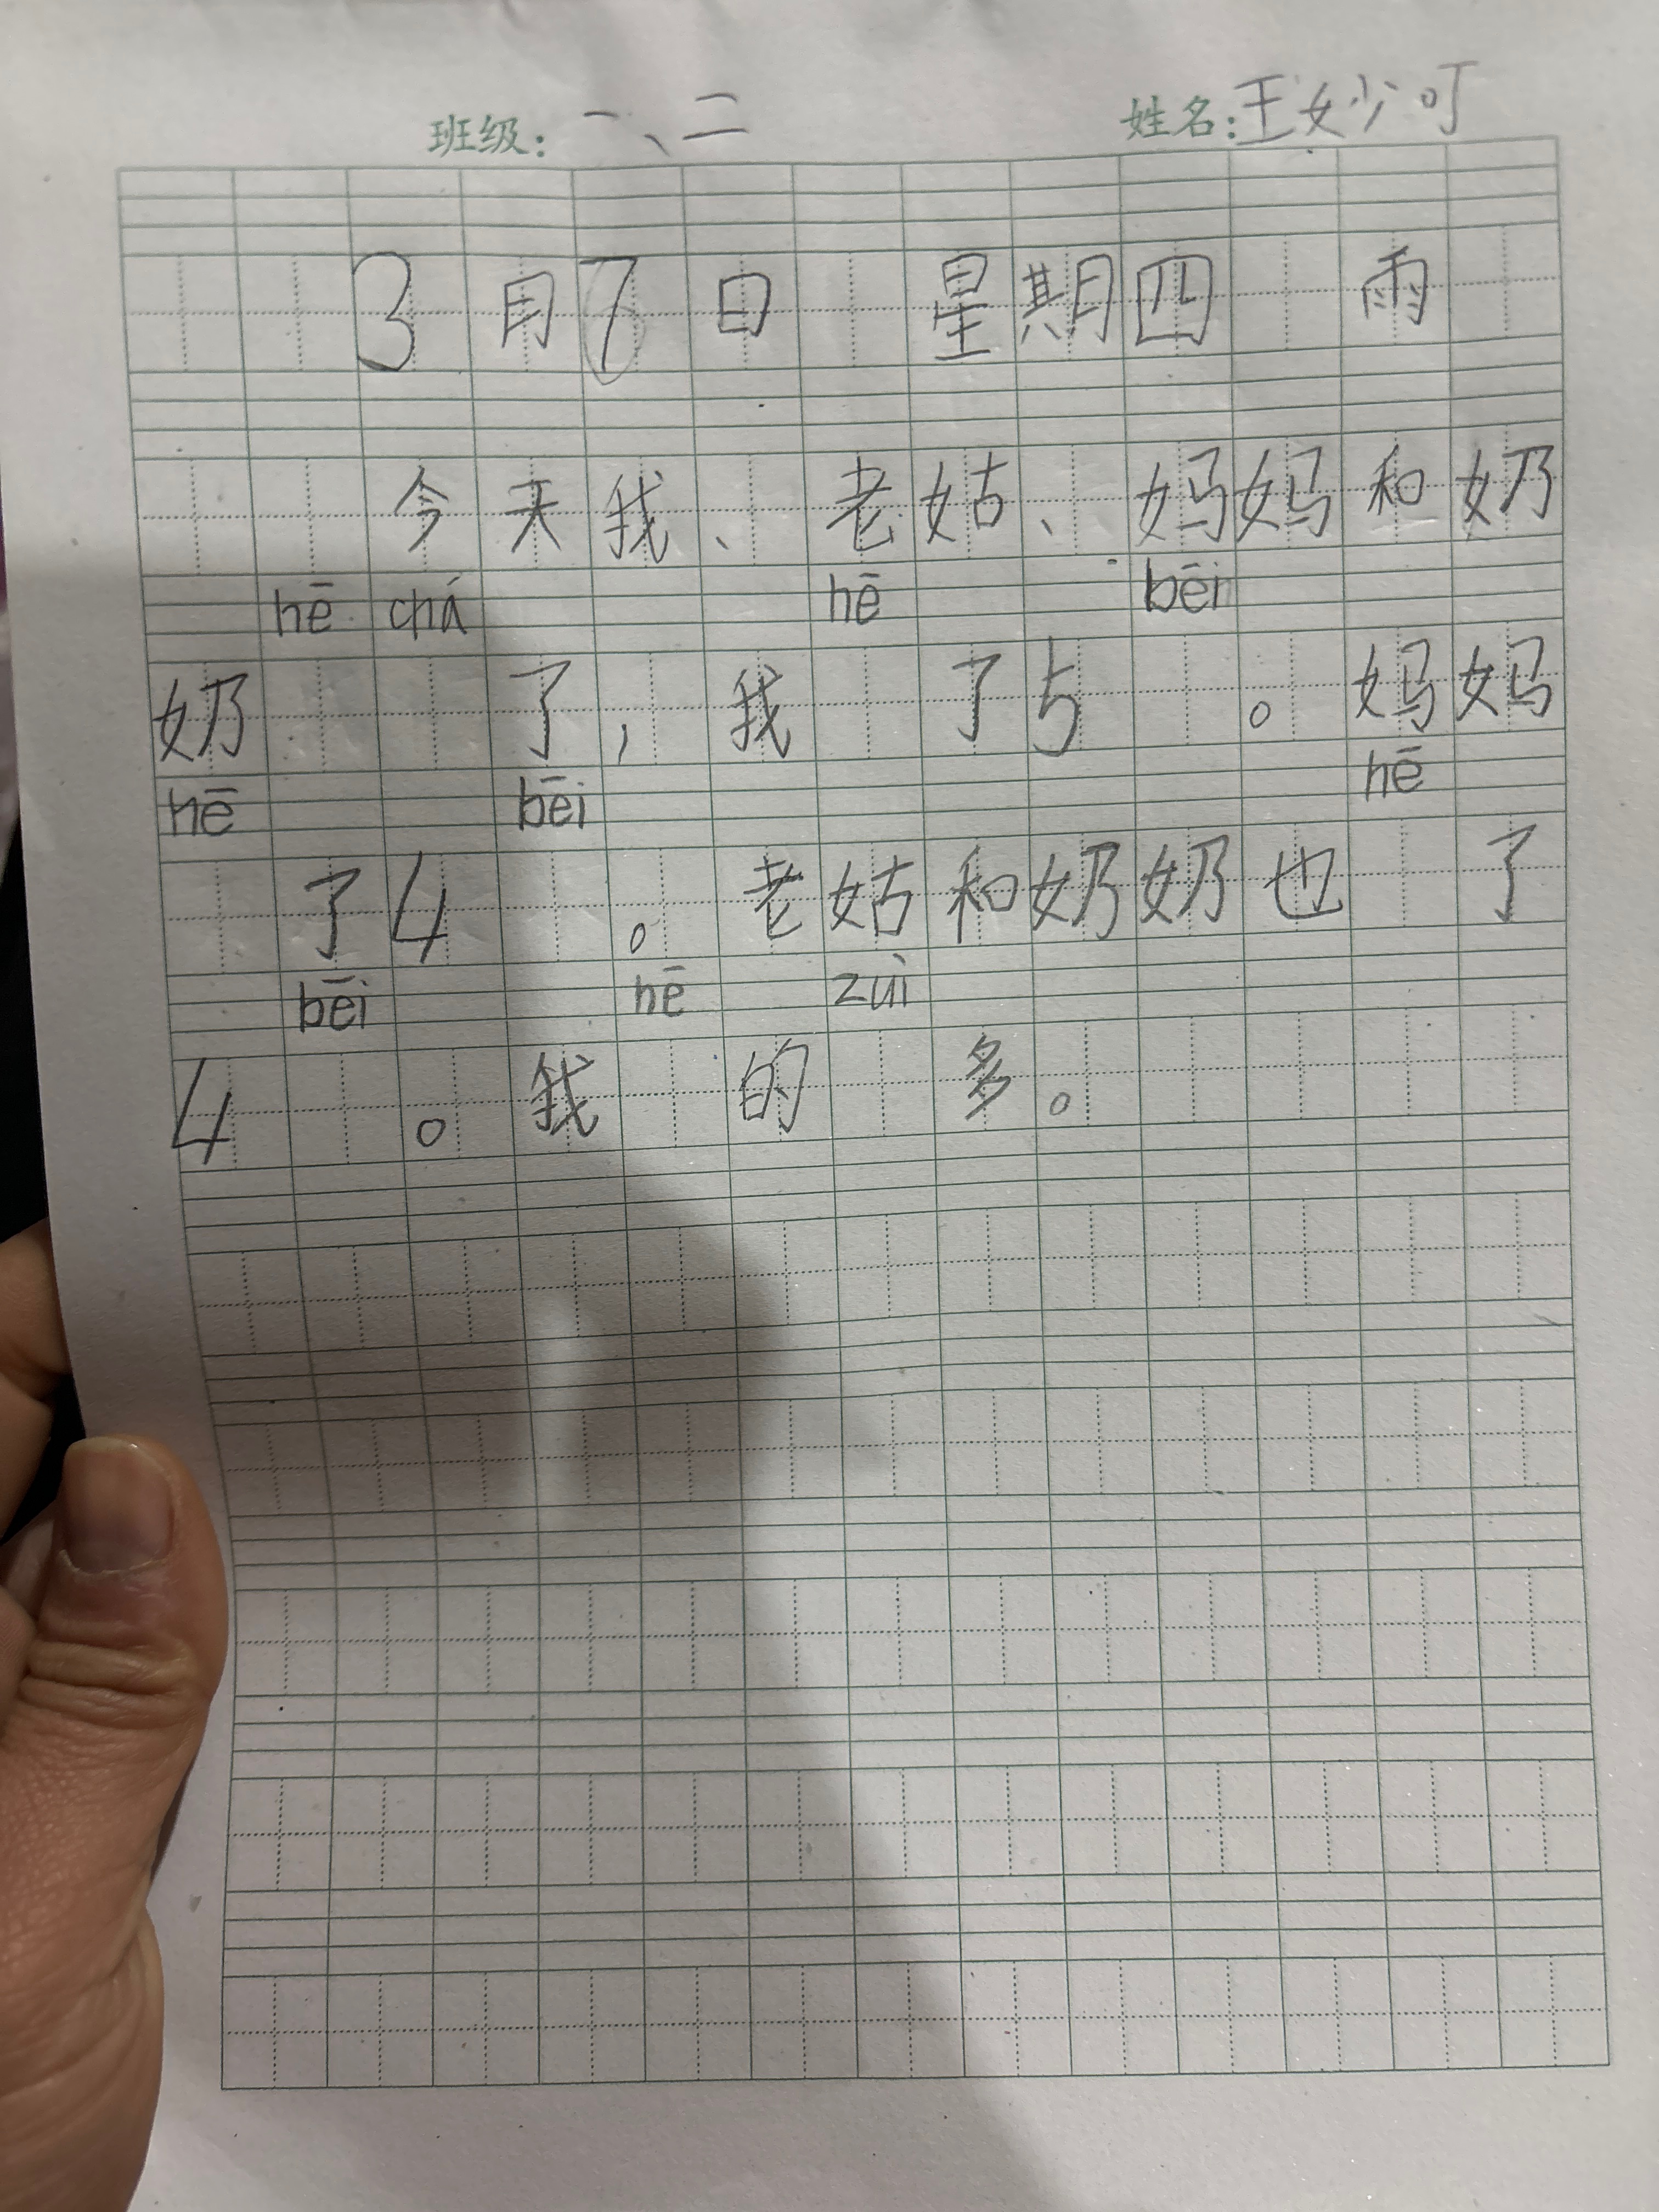 班级：一、二 姓名：王妙可
3月7日 星期四 雨
今天我、老姑、妈妈和奶
hē chá hē bēi
奶 了，我 了5 。妈妈
hē bēi hē
了4 。老姑和奶奶也 了
bēi hē zuì
4 。我 的 多。